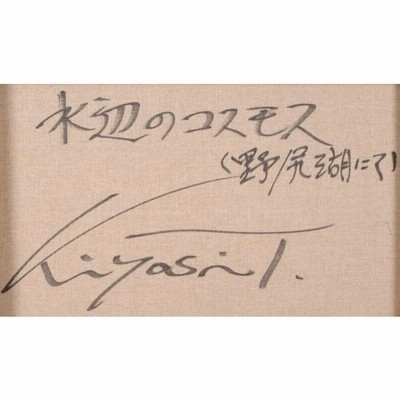 水辺のコスモス
(野尻湖にて)
Kiyosi T.